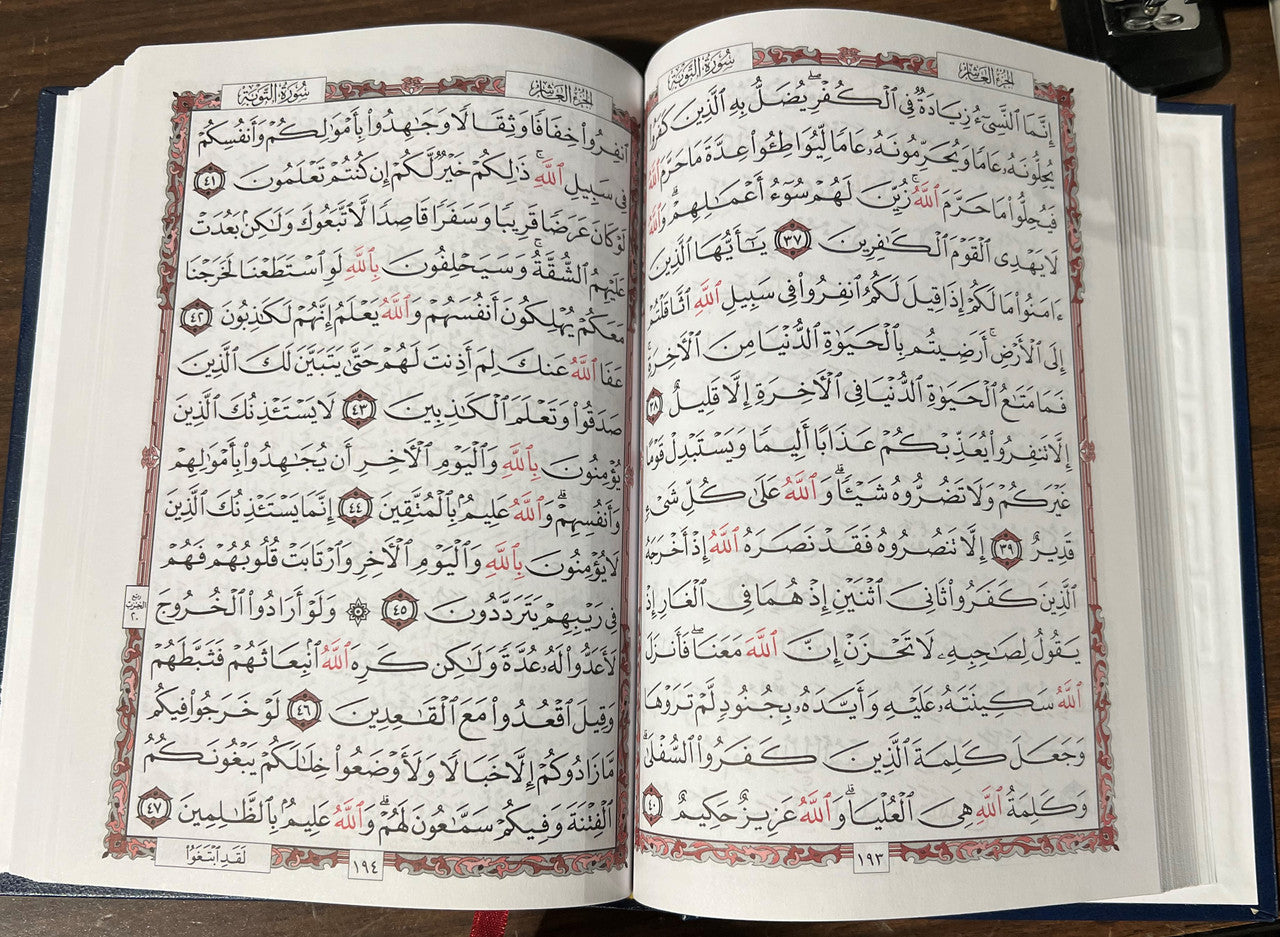 سُورَةُ التَّوْبَةِ
الجُزْءُ العَاشِرُ
إِنَّمَا ٱلنَّسِيٓءُ زِيَادَةٌ فِي ٱلْكُفْرِۖ يُضَلُّ بِهِ ٱلَّذِينَ كَفَرُوا۟
يُحِلُّونَهُۥ عَامًا وَيُحَرِّمُونَهُۥ عَامًا لِّيُوَاطِـُٔوا۟ عِدَّةَ مَا حَرَّمَ ٱللَّهُ
فَيُحِلُّوا۟ مَا حَرَّمَ ٱللَّهُۚ زُيِّنَ لَهُمْ سُوٓءُ أَعْمَـٰلِهِمْۗ وَٱللَّهُ
لَا يَهْدِى ٱلْقَوْمَ ٱلْكَـٰفِرِينَ ٣٧ يَـٰٓأَيُّهَا ٱلَّذِينَ
ءَامَنُوا۟ مَا لَكُمْ إِذَا قِيلَ لَكُمُ ٱنفِرُوا۟ فِى سَبِيلِ ٱللَّهِ ٱثَّاقَلْتُمْ
إِلَى ٱلْأَرْضِۚ أَرَضِيتُم بِٱلْحَيَوٰةِ ٱلدُّنْيَا مِنَ ٱلْـَٔاخِرَةِۚ
فَمَا مَتَـٰعُ ٱلْحَيَوٰةِ ٱلدُّنْيَا فِى ٱلْـَٔاخِرَةِ إِلَّا قَلِيلٌ ٣٨
إِلَّا تَنفِرُوا۟ يُعَذِّبْكُمْ عَذَابًا أَلِيمًا وَيَسْتَبْدِلْ قَوْمًا
غَيْرَكُمْ وَلَا تَضُرُّوهُ شَيْـًٔاۗ وَٱللَّهُ عَلَىٰ كُلِّ شَىْءٍ
قَدِيرٌ ٣٩ إِلَّا تَنصُرُوهُ فَقَدْ نَصَرَهُ ٱللَّهُ إِذْ أَخْرَجَهُ
ٱلَّذِينَ كَفَرُوا۟ ثَانِىَ ٱثْنَيْنِ إِذْ هُمَا فِى ٱلْغَارِ إِذْ
يَقُولُ لِصَـٰحِبِهِۦ لَا تَحْزَنْ إِنَّ ٱللَّهَ مَعَنَاۖ فَأَنزَلَ
ٱللَّهُ سَكِينَتَهُۥ عَلَيْهِ وَأَيَّدَهُۥ بِجُنُودٍ لَّمْ تَرَوْهَا
وَجَعَلَ كَلِمَةَ ٱلَّذِينَ كَفَرُوا۟ ٱلسُّفْلَىٰۗ
وَكَلِمَةُ ٱللَّهِ هِىَ ٱلْعُلْيَاۗ وَٱللَّهُ عَزِيزٌ حَكِيمٌ ٤٠
١٩٣
الجُزْءُ العَاشِرُ
سُورَةُ التَّوْبَةِ
ٱنفِرُوا۟ خِفَافًا وَثِقَالًا وَجَـٰهِدُوا۟ بِأَمْوَٰلِكُمْ وَأَنفُسِكُمْ
فِى سَبِيلِ ٱللَّهِۚ ذَٰلِكُمْ خَيْرٌ لَّكُمْ إِن كُنتُمْ تَعْلَمُونَ ٤١
لَوْ كَانَ عَرَضًا قَرِيبًا وَسَفَرًا قَاصِدًا لَّٱتَّبَعُوكَ وَلَـٰكِنۢ بَعُدَتْ
عَلَيْهِمُ ٱلشُّقَّةُۚ وَسَيَحْلِفُونَ بِٱللَّهِ لَوِ ٱسْتَطَعْنَا لَخَرَجْنَا
مَعَكُمْ يُهْلِكُونَ أَنفُسَهُمْ وَٱللَّهُ يَعْلَمُ إِنَّهُمْ لَكَـٰذِبُونَ ٤٢
عَفَا ٱللَّهُ عَنكَ لِمَ أَذِنتَ لَهُمْ حَتَّىٰ يَتَبَيَّنَ لَكَ ٱلَّذِينَ
صَدَقُوا۟ وَتَعْلَمَ ٱلْكَـٰذِبِينَ ٤٣ لَا يَسْتَـْٔذِنُكَ ٱلَّذِينَ
يُؤْمِنُونَ بِٱللَّهِ وَٱلْيَوْمِ ٱلْـَٔاخِرِ أَن يُجَـٰهِدُوا۟ بِأَمْوَٰلِهِمْ
وَأَنفُسِهِمْۗ وَٱللَّهُ عَلِيمٌۢ بِٱلْمُتَّقِينَ ٤٤ إِنَّمَا يَسْتَـْٔذِنُكَ ٱلَّذِينَ
لَا يُؤْمِنُونَ بِٱللَّهِ وَٱلْيَوْمِ ٱلْـَٔاخِرِ وَٱرْتَابَتْ قُلُوبُهُمْ فَهُمْ
فِى رَيْبِهِمْ يَتَرَدَّدُونَ ٤٥ ۞ وَلَوْ أَرَادُوا۟ ٱلْخُرُوجَ
لَأَعَدُّوا۟ لَهُۥ عُدَّةً وَلَـٰكِن كَرِهَ ٱللَّهُ ٱنۢبِعَاثَهُمْ فَثَبَّطَهُمْ
وَقِيلَ ٱقْعُدُوا۟ مَعَ ٱلْقَـٰعِدِينَ ٤٦ لَوْ خَرَجُوا۟ فِيكُم
مَّا زَادُوكُمْ إِلَّا خَبَالًا وَلَأَوْضَعُوا۟ خِلَـٰلَكُمْ يَبْغُونَكُمُ
ٱلْفِتْنَةَ وَفِيكُمْ سَمَّـٰعُونَ لَهُمْۗ وَٱللَّهُ عَلِيمٌۢ بِٱلظَّـٰلِمِينَ ٤٧
لَقَدِ ٱبْتَغَوُا۟
١٩٤